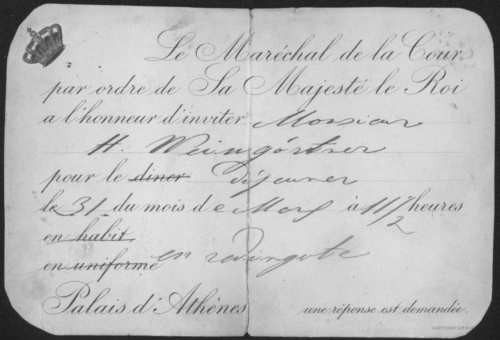 Le Maréchal de la Cour
par ordre de Sa Majesté le Roi
a l'honneur d'inviter Monsieur
H. Weingärtner
pour le diner Déjeuner
le 31 du mois de Mars à 11 1/2 heures
en habit
en uniforme en redingote
Palais d'Athènes une réponse est demandée.